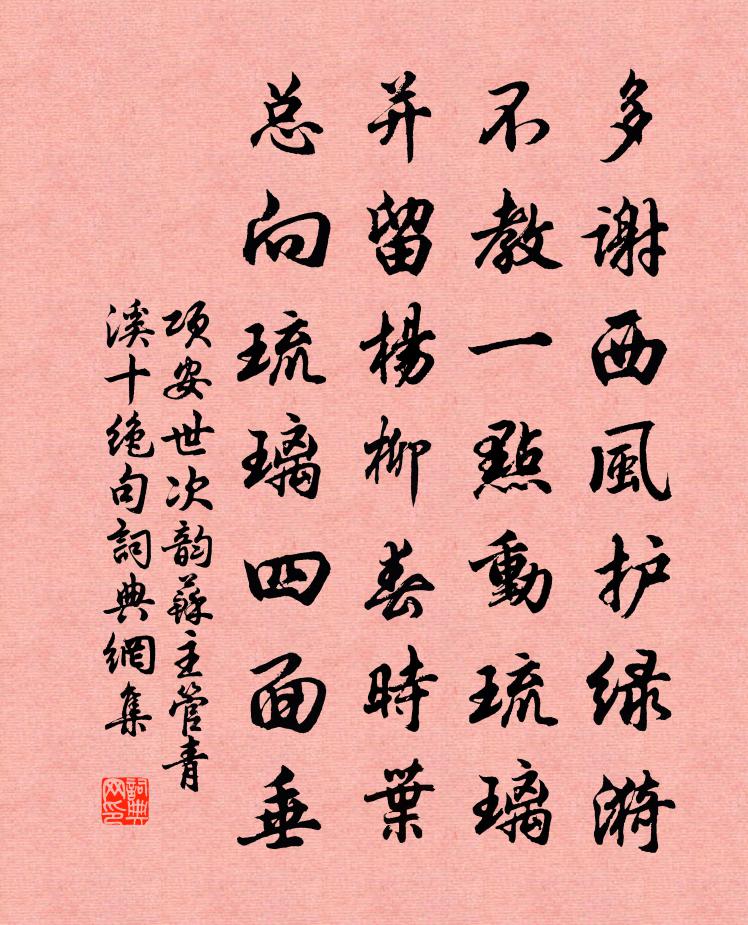 多谢西風护绿漪
不教一點動琉璃
并留楊柳春時葉
总向琉璃四面垂
项安世次韵蘇主管青
溪十绝句詞典網集
詞典网印